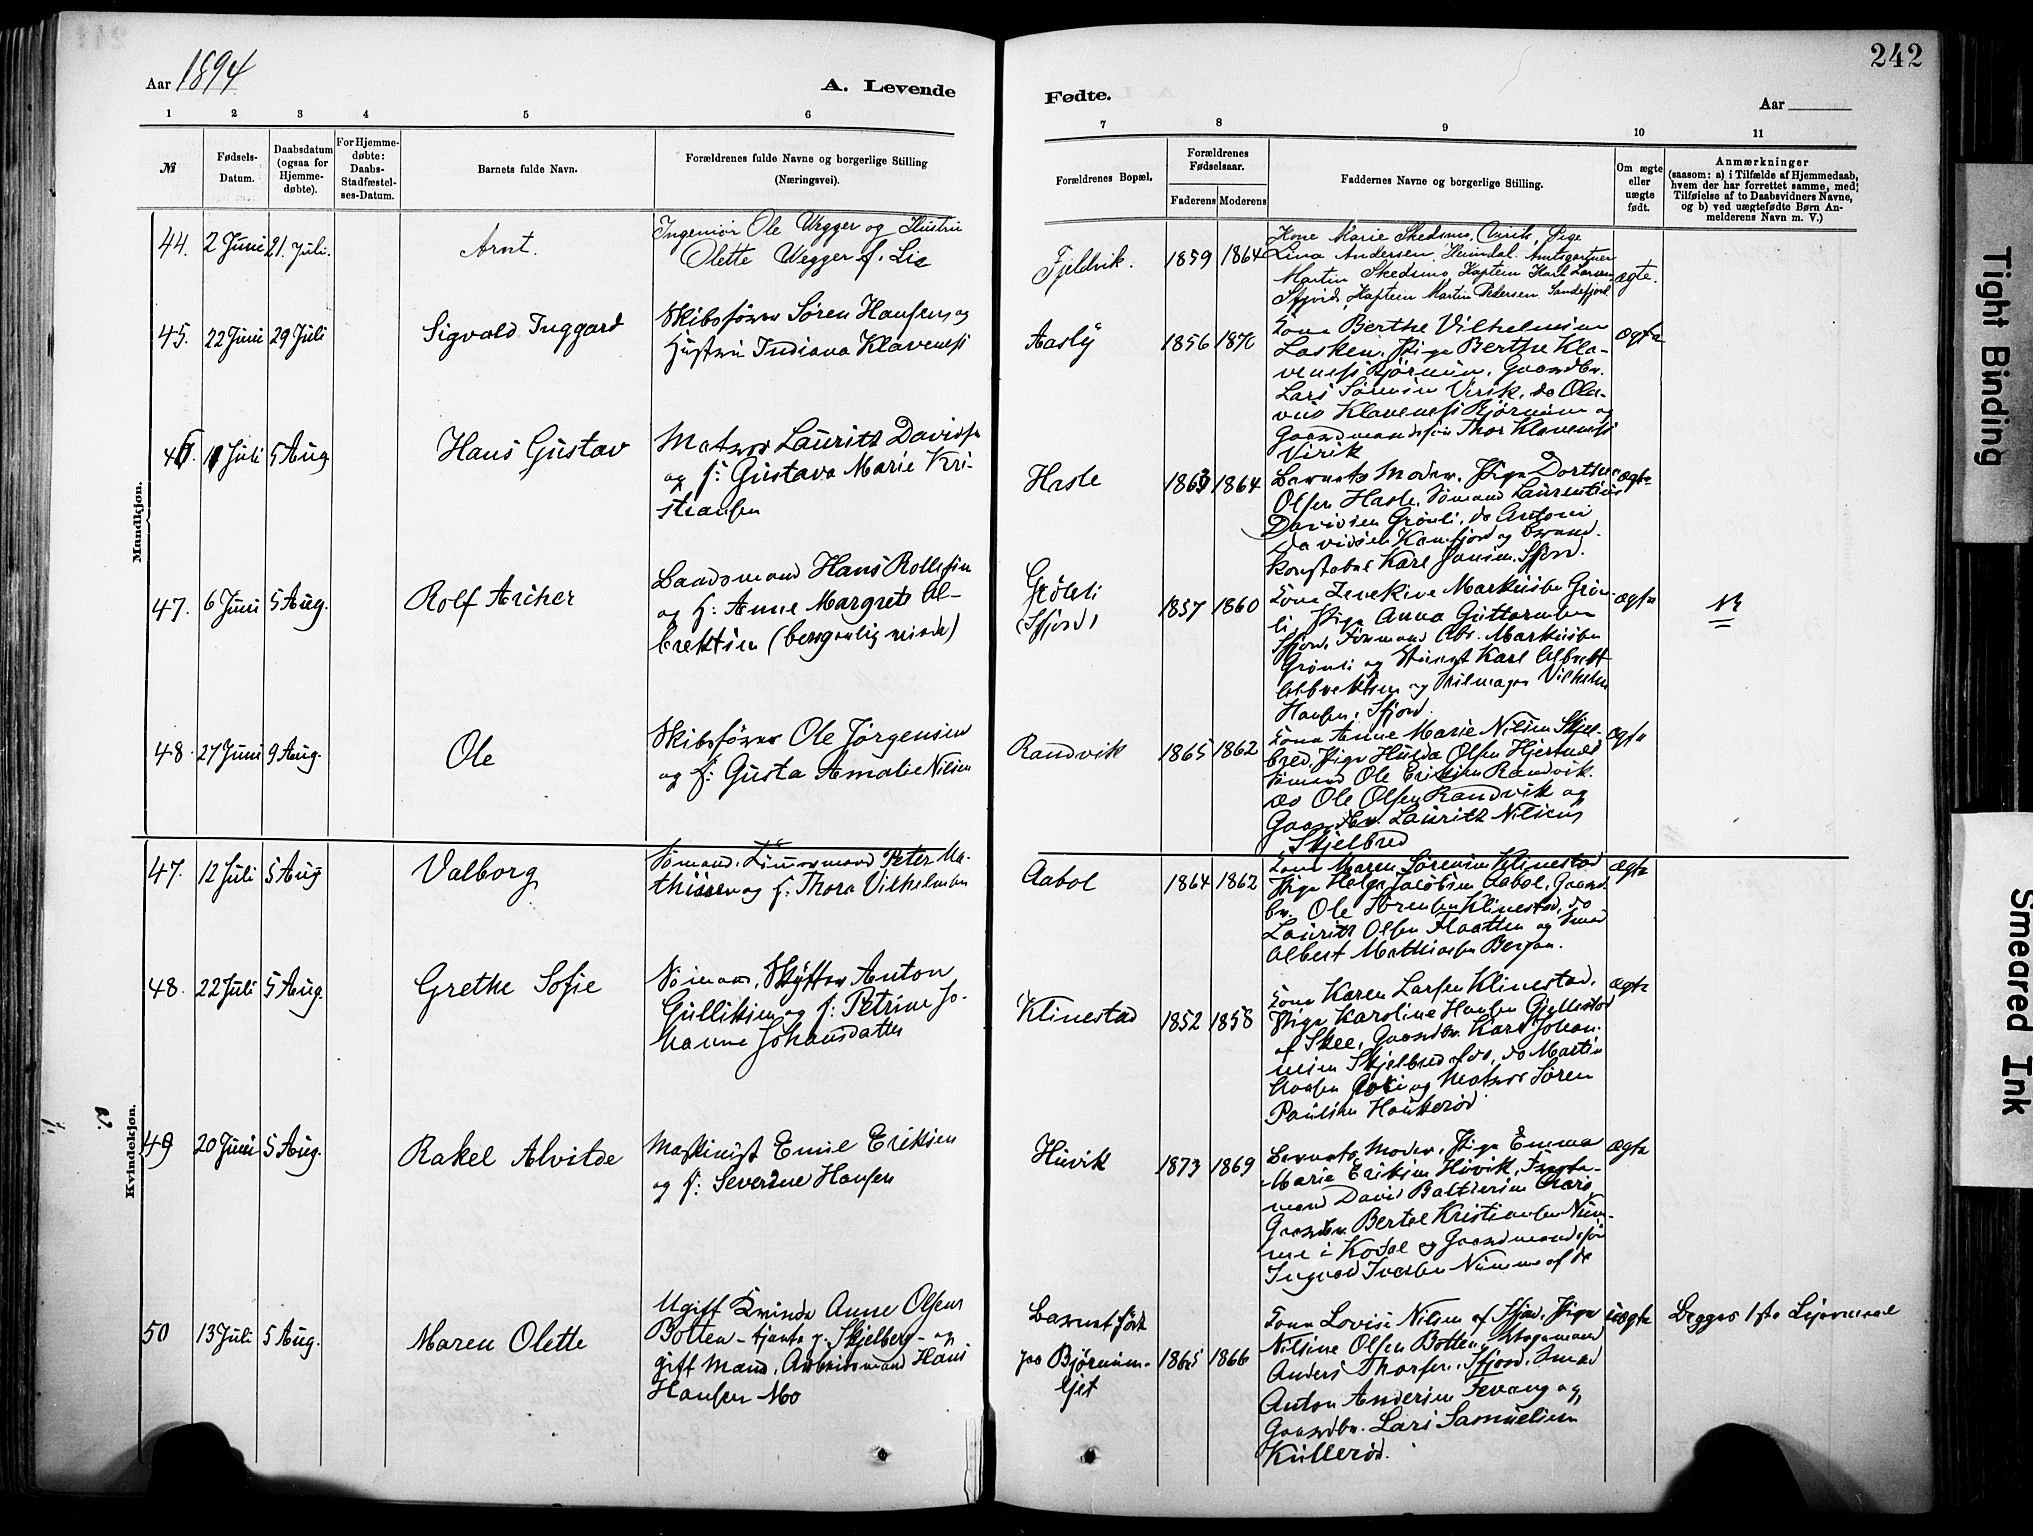 242
Aar 1894
A. Levende
Fødte.
Aar
1 2 3 4 5 6 7 8 9 10 11
№
Fødsels-
Datum.
Daabsdatum
(ogsaa for
Hjemme-
døbte).
For Hjemme-
døbte:
Daabs-
Stadfæstel-
ses-Datum.
Barnets fulde Navn.
Forældrenes fulde Navne og borgerlige Stilling
(Næringsvei).
Forældrenes Bopæl.
Forældrenes
Fødselsaar.
Faderens Moderens
Faddernes Navne og borgerlige Stilling.
Om ægte
eller
uægte
født.
Anmærkninger
(saasom: a) i Tilfælde af Hjemmedaab,
hvem der har forrettet samme, med
Tilføielse af to Daabsvidners Navne,
og b) ved uægtefødte Børn An-
melderens Navn m. V.)
Mandkjøn.
44. 2 Juni 21. Juli. Arnt.
Ingeniør Ole Wegger og Hustru
Olette Wegger f. Lie
Fjeldvik. 1859 1864
Kone Marie Skedsmo, Virik, Pige
Lina Andersen, Heimdal. Amtsgartner
Martin Skedsmo, Kaptein Karl Larsen,
Sfjord, Kaptein Martin Pedersen, Sandefjord
ægte.
45. 22 Juni 29 Juli Sigvald Inggard
Skibsfører Søren Hansen og
Hustru Indiana Klaveness
Aasly 1856 1870
Kone Berthe Vilhelmine
Lasken, Pige Berthe Kla-
veness Bjørnum, Gaardbr.
Lars Sørensen Virik, do Ola-
vus Klaveness Bjørnum og
Gaardmandssøn Thor Klaveness
Virik
ægte
46. 11 Juli 5 Aug Hans Gustav
Matros Lauritz Davidsen
og h: Gustava Marie Kri-
stiansen
Hasle 1863 1864
Barnets Moder, Pige Dorthe
Olsen Hasle, Sømand Laurentius
Davidsen Grønli, do Antoni
Davidsen Kamfjord og Brand-
konstabel Karl Jansen, Sfjord.
ægte
47. 6 Juni 5 Aug. Rolf Archer
Baadsmand Hans Rollefsen
og h: Anne Margrete Al-
brektsen (borgerlig viede)
Grønli
(Sfjord) 1857 1860
Kone Zenekine Markusen Grøn-
li, Pige Anna Guttormsen
Sfjord, Formand Abr. Markusen
Grønli og Styrmt Karl Albrekt
Albrektsen og Seilmager Vilhelm
Hansen, Sfjord.
ægte
48. 27 Juni 9 Aug. Ole
Skibsfører Ole Jørgensen
og h: Gusta Amalie Nilsen
Randvik 1865 1862
Kone Anne Marie Nilsen Skjel-
bred, Pige Hulda Olsen Hjertnes
Sømand Ole Eriksen Randvik.
do Ole Olsen Randvik og
Gaardbr. Lauritz Nilsens
Skjelbred
ægte
Kvindekjøn.
47. 12 Juli 5 Aug Valborg
Sømand, Tømmermand Peter Ma-
thissen og h. Thora Vilhelmsen
Aabol 1864 1862
Kone Maren Sørensen Klinestad
Pige Helga Jacobsen Aabol, Gaard-
br. Ole Sørensen Klinestad, do
Lauritz Olsen Haatten og Smed
Albert Mathiasen Bergan.
ægte
48. 22 Juli 5 Aug. Grethe Sofie
Sømand, Skytter Anton
Gulliksen og h: Petrine Jo-
hanne Johansdatter
Klinestad 1852 1858
Kone Karen Larsen Klinestad,
Pige Karoline Hansen Gjellestad
af Skee, Gaardbr. Karl Johan-
nesen Skjelbred af do, do Martin
og Matros Søren
Paulsen Haukerød
ægte
49 20 Juni 5 Aug. Rakel Alvilde
Maskinist Emil Eriksen
og h: Severine Hansen
Huvik 1873 1869
Barnets Moder, Pige Emma
Marie Eriksen Huvik, Første-
mand David Baltzersen
Gaardbr. Bertel Kristiansen Num-
me i Kodal og Gaardmandssøn
Ingvald Iversen Numme af do
ægte
50 13 Juli 5 Aug. Maren Olette
Ugift Kvinde Anne Olsen
Botten – tjente p. Skjelberg – og
gift Mand, Arbeidsmand Hans
Hansen Mo
Barnet født
paa Bjørnum-
ejet 1865 1866
Kone Lovise Nilsen af Sfjord, Pige
Nilsine Olsen Botten,
Anders Thorsen, Sfjord, Smed
Anton Andersen Fevang og
Gaardbr. Lars Samuelsen
Kullerød.
uægte
Begges 1ste Leiermaal
Tight Binding
Smeared Ink